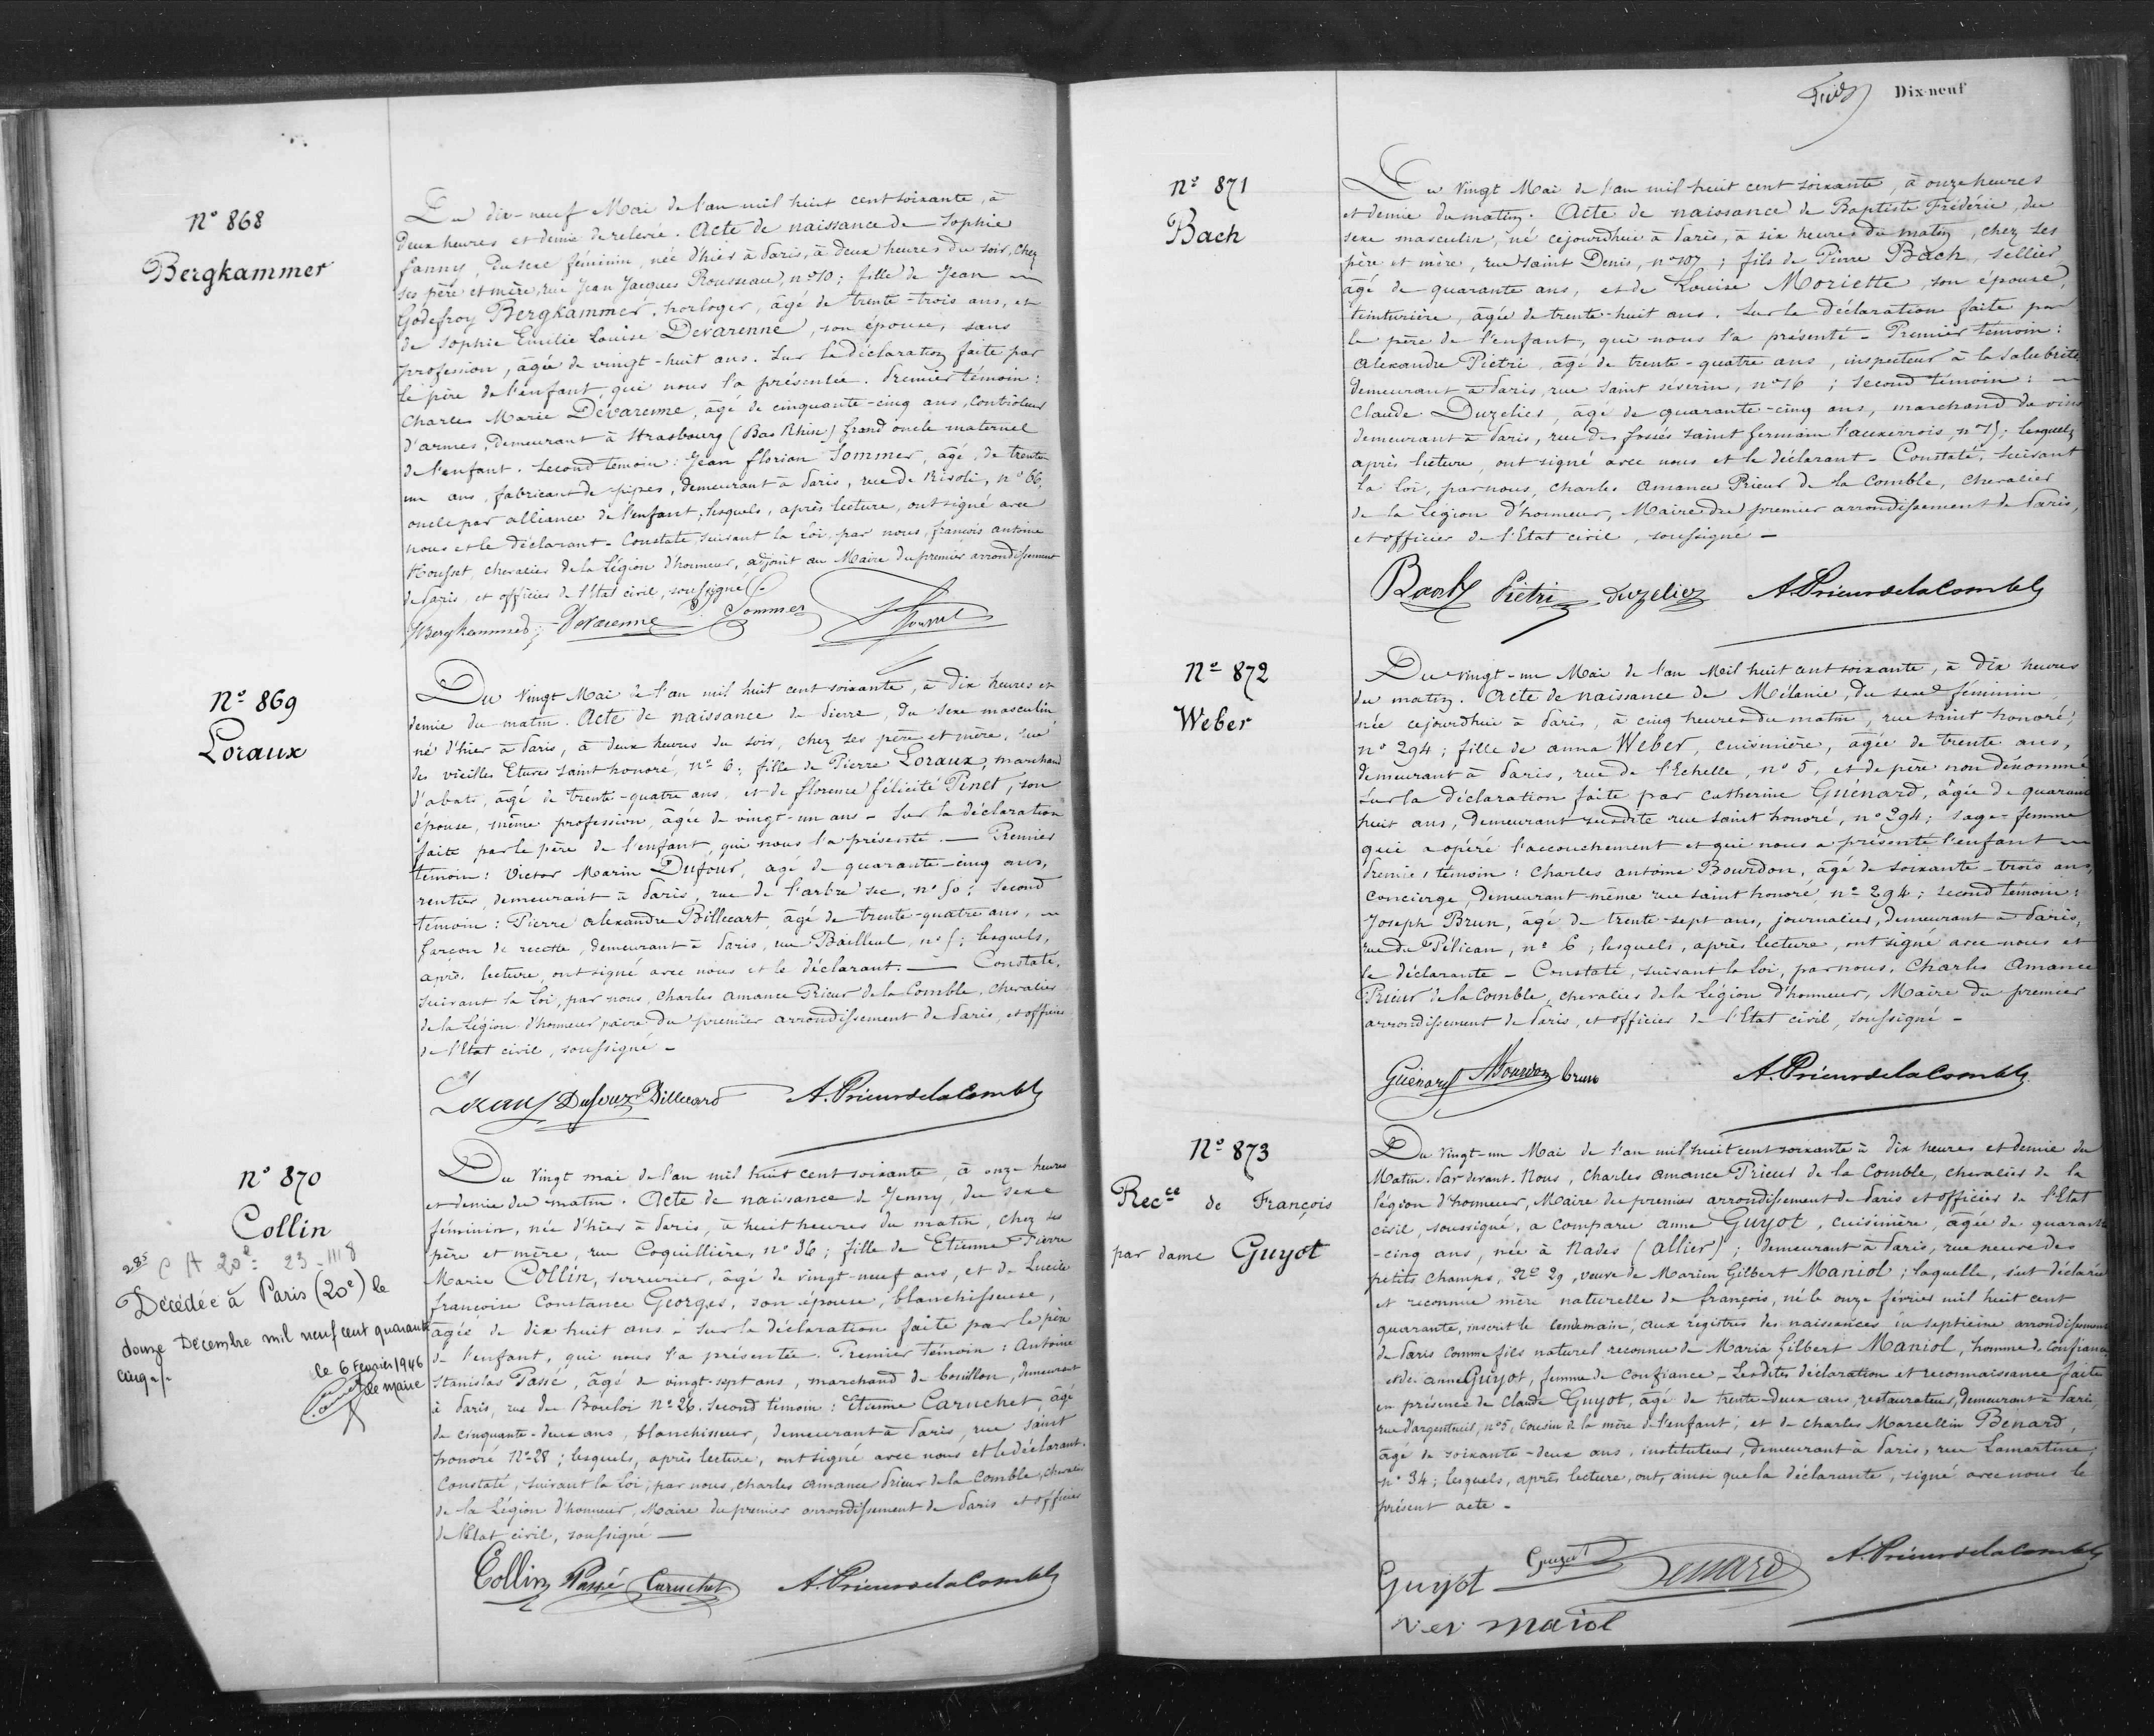 N° 868
Bergkammer
Du dix-neuf Mai de l'an mil huit cent soixante, à
deux heures et demie de relevée. Acte de naissance de Sophie
fanny, du sexe féminin, née d'hier à Paris, à deux heures du soir, chez
ses père et mère, rue Jean Jacques Rousseau, n° 10; fille de Jean
Godefroy Bergkammer, horloger, âgé de trente-trois ans, et
de Sophie Emilie Louise Devarenne, son épouse, sans
profession, âgée de vingt-huit ans. Sur la déclaration faite par
le père de l'enfant, qui nous l'a présentée. Premier témoin:
Charles Marie Devarenne, âgé de cinquante-cinq ans, Controleur
d'armes, demeurant à Strasbourg (Bas Rhin) grand oncle maternel
de l'enfant. Second temoin: Jean florian Sommer, âgé de trente
un ans, fabricant de pipes, demeurant à Paris, rue de Rivoli, n° 66,
oncle par alliance de l'enfant; lesquels, après lecture, ont signé avec
nous et le déclarant - Constaté, suivant la Loi, par nous, françois antoine
Housset, chevalier de la Légion d'honneur, adjoint au Maire du premier arrondissement
de Paris, et officier de l'Etat civil, soussigné
Bergkammer Devarenne Sommer Housset
N° 869
Loraux
Du Vingt Mai de l'an mil huit cent soixante, à dix heures et
demie du matin. Acte de naissance de Pierre, du sexe masculin
né d'hier à Paris, à deux heures du soir, chez ses père et mère, rue
des vieilles Etuves saint honoré, n° 6; fille de Pierre Loraux, marchand
d'abats, âgé de trente-quatre ans, et de florence félicité Pinet, son
épouse, même profession, âgée de vingt-un ans - Sur la déclaration
faite par le père de l'enfant, qui nous l'a présenté. — Premier
témoin: Victor Marin Dufour, âgé de quarante-cinq ans,
rentier, demeurant à Paris, rue de l'arbre sec, n° 50; Second
témoin: Pierre alexandre Billecart, âgé de trente-quatre ans,
garçon de recette, demeurant à Paris, rue Bailleul, n° 5; lesquels,
après lecture, ont signé avec nous et le déclarant. — Constaté,
suivant la Loi, par nous, Charles amance Prieur de la Comble, Chevalier
de la Légion d'honneur, maire du premier arrondissement de Paris, et officier
de l'Etat civil, soussigné -
Loraux Dufour Billecard A. Prieur de la Comble
N° 870
Collin
C A 20e: 23
Décédée à Paris (20e) le
douze Décembre mil neuf cent quarante
cinq
le 6 Février 1946
le maire
Du Vingt mai de l'an mil huit cent soixante, à onze heures
et demie du matin. Acte de naissance de Jenny, du sexe
féminin, née d'hier à Paris, à huit heures du matin, chez ses
père et mère, rue Coquillière, n° 36; fille de Etienne Pierre
Marie Collin, serrurier, âgé de vingt-neuf ans, et de Lucile
françoise Constance Georges, son épouse, blanchisseuse,
âgée de dix huit ans - Sur la déclaration faite par le père
de l'enfant, qui nous l'a présentée. Premier témoin: Antoine
Stanislas Passé, âgé de vingt-sept ans, marchand de bouillon, demeurant
à Paris, rue du Bouloi N° 26. Second témoin: Etienne Caruchet, âgé
de cinquante-deux ans, blanchisseur, demeurant à Paris, rue saint
honoré N° 28; lesquels, après lecture, ont signé avec nous et le déclarant.
Constaté, suivant la Loi, par nous, Charles amance Prieur de la Comble, chevalier
de la Légion d'honneur, Maire du premier arrondissement de Paris et officier
de l'Etat civil, soussigné —
Collin Passé Caruchet A. Prieur de la Comble
Dix-neuf
N° 871
Bach
Du Vingt Mai de l'an mil huit cent soixante, à onze heures
et demie du matin. Acte de naissance de Baptiste Frédéric, du
sexe masculin, né cejourd'hui à Paris, à six heures du matin, chez ses
père et mère, rue saint Denis, n° 107; fils de Pierre Bach, sellier,
âgé de quarante ans, et de Louise Moriette, son épouse,
teinturière, âgée de trente-huit ans. Sur la déclaration faite par
le père de l'enfant, qui nous l'a présenté - Premier témoin:
alexandre Pietri, âgé de trente-quatre ans, inspecteur à la salubrité
demeurant à Paris, rue Saint séverin, n° 16; second témoin:
Claude Duzeliez, âgé de quarante-cinq ans, marchand de vins
demeurant à Paris, rue des fossés saint germain l'auxerrois, n°; lesquels
après lecture, ont signé avec nous et le déclarant - Constaté, suivant
la Loi, par nous, Charles amance Prieur de la Comble, chevalier
de la Légion d'honneur, Maire du premier arrondissement de Paris,
et officier de l'Etat civil, soussigné -
Bach Pietri Duzeliez A. Prieur de la Comble
N° 872
Weber
Du vingt-un Mai de l'an Mil huit cent soixante, à dix heures
du matin. Acte de naissance de Mélanie, du sexe féminin
née cejourd'hui à Paris, à cinq heures du matin, rue saint honoré,
n° 294; fille de anna Weber, cuisinière, âgée de trente ans,
demeurant à Paris, rue de l'Echelle, n° 5, et de père non dénommé
Sur la déclaration faite par catherine Guénard, âgée de quarante
huit ans, demeurant susdite rue saint honoré, n° 294; sage-femme
qui a opéré l'accouchement et qui nous a présenté l'enfant
Premier témoin: Charles antoine Bourdon, âgé de soixante-trois ans,
concierge, demeurant même rue saint honoré, n° 294; second témoin:
Joseph Brun, âgé de trente-sept ans, journalier, demeurant à Paris,
rue du Pélican, n° 6; lesquels, après lecture, ont signé avec nous et
la déclarante - Constaté, suivant la Loi, par nous, Charles Amance
Prieur de la Comble, chevalier de la Légion d'honneur, Maire du premier
arrondissement de Paris, et officier de l'Etat civil, soussigné -
Guénard Bourdon brun A. Prieur de la Comble
N° 873
Recce de François
par dame Guyot
Du Vingt-un Mai de l'an mil huit cent soixante à dix heures et demie du
Matin. Par devant Nous, Charles amance Prieur de la Comble, chevalier de la
légion d'honneur, Maire du premier arrondissement de Paris et officier de l'Etat
civil, soussigné, a comparu anne Guyot, cuisinière, âgée de quarante
-cinq ans, née à Nades (allier); demeurant à Paris, rue neuve des
petits champs, N° 29, veuve de Marien Gilbert Maniol; laquelle, s'est déclarée
et reconnue mère naturelle de françois, né le onze février mil huit cent
quarante, inscrit le lendemain, aux régistres des naissances du septième arrondissement
de Paris comme fils naturel reconnu de Maria Gilbert Maniol, homme de confiance
et de anne Guyot, femme de confiance - Lesdites déclaration et reconnaissance faite
en présence de Claude Guyot, âgé de trente-deux ans, restaurateur, demeurant à Paris
rue d'argenteuil, n° 5, Cousin de la mère de l'enfant; et de charles Marcellin Benard,
âgé de soixante-deux ans, instituteur, demeurant à Paris, rue Lamartine,
n° 34; lesquels, après lecture, ont, ainsi que la déclarante, signé avec nous le
présent acte -
Guyot Guyot Benard A. Prieur de la Comble